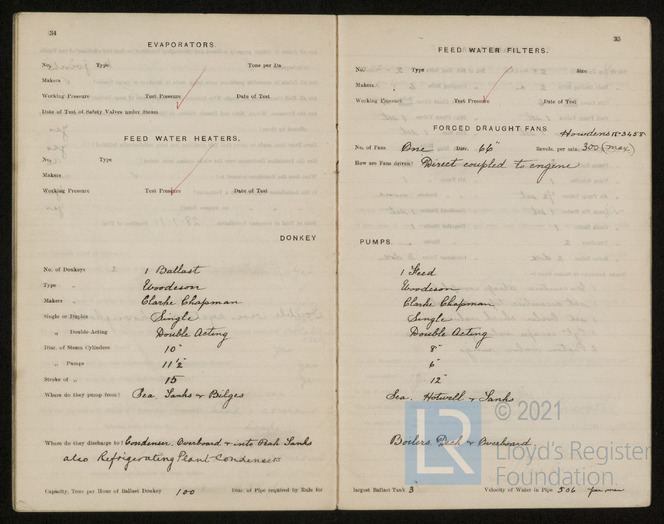 34
EVAPORATORS.
No. Type Tons per Da
Makers
Working Pressure Test Pressure Date of Test
Date of Test of Safety Valves under Steam
FEED WATER HEATERS.
No. Type
Makers
Working Pressure Test Pressure Date of Test
DONKEY
No. of Donkeys 1 Ballast
Type " Woodeson
Makers " Clarke Chapman
Single or Duplex Single
" Double-Acting Double Acting
Diar. of Steam Cylinders 10"
" Pumps 11½"
Stroke of " 15
Where do they pump from? Sea Tanks & Bilges
Where do they discharge to? Condenser, Overboard & into Bah Tanks
also Refrigerating Plant Condensers
Capacity, Tons per Hour of Ballast Donkey 100 Diar. of Pipe required by Rule for
35
FEED WATER FILTERS.
No. Type Size
Makers
Working Pressure Test Pressure Date of Test
FORCED DRAUGHT FANS. Howdens
No. of Fans One Diar. 66" Revols. per min. 300 (max.)
How are Fans driven? Direct coupled to engine
PUMPS.
1 Feed
Woodeson
Clarke Chapman
Single
Double Acting
8"
6"
12"
Sea. Hotwell & Tanks
Boilers Deck & Overboard
largest Ballast Tank 3 Velocity of Water in Pipe 506 per min
LR © 2021
Lloyd's Register
Foundation.